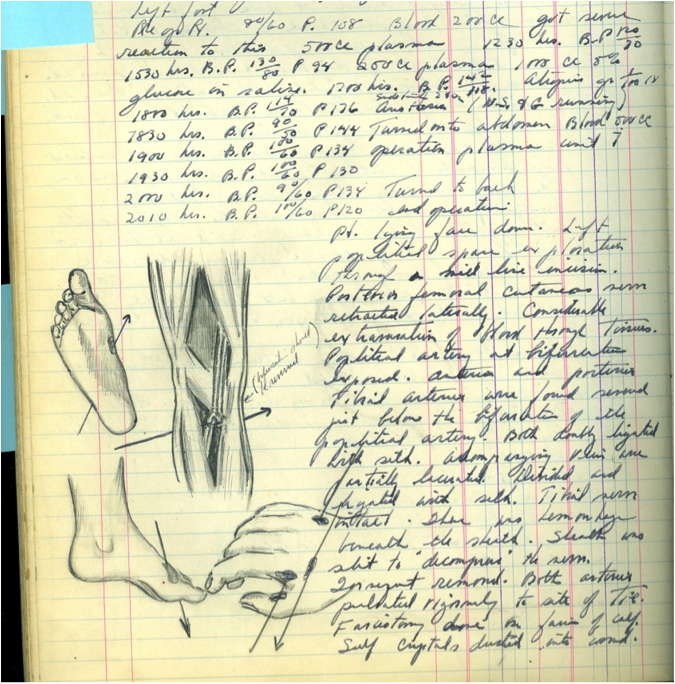 Left foot
Pre op Rx. 80/60 P. 108 Blood 200 cc got serum
reaction to this 500 cc plasma 1230 hrs. B.P. 120/80
1530 hrs. B.P. 130/80 P 94 200 cc plasma 1000 cc 5%
glucose in saline. 1700 hrs. B.P. gr 1/100
1800 hrs. B.P. 114/70 P 136 running)
B.P. 90/50 P 144 Turned onto abdomen Blood 500 cc
1900 hrs. B.P. 100/60 P 134 operation plasma unit
1930 hrs. B.P. 100/60 P 130
2000 hrs. B.P. 90/60 P 134 Turned to back
2010 hrs. B.P. 100/60 P 120 end operation
Pt. lying face down. Left
popliteal space exploration
through a mid line incision.
Posterior femoral cutaneous nerve
retracted laterally. Considerable
extravasation of blood through tissues.
Popliteal artery at bifurcation
exposed. Anterior and posterior
tibial arteries were found severed
just below the bifurcation of the
popliteal artery. Both doubly ligated
with silk. Accompanying vein were
partially lacerated. Divided and
ligated with silk. Tibial nerve
intact. There was hemorrhage
beneath the sheath. Sheath was
slit to "decompress" the nerve.
removed. Both arteries
pulsated vigorously to site of tie.
Fasciotomy done on fascia of calf.
Sulf crystals dusted into wound.